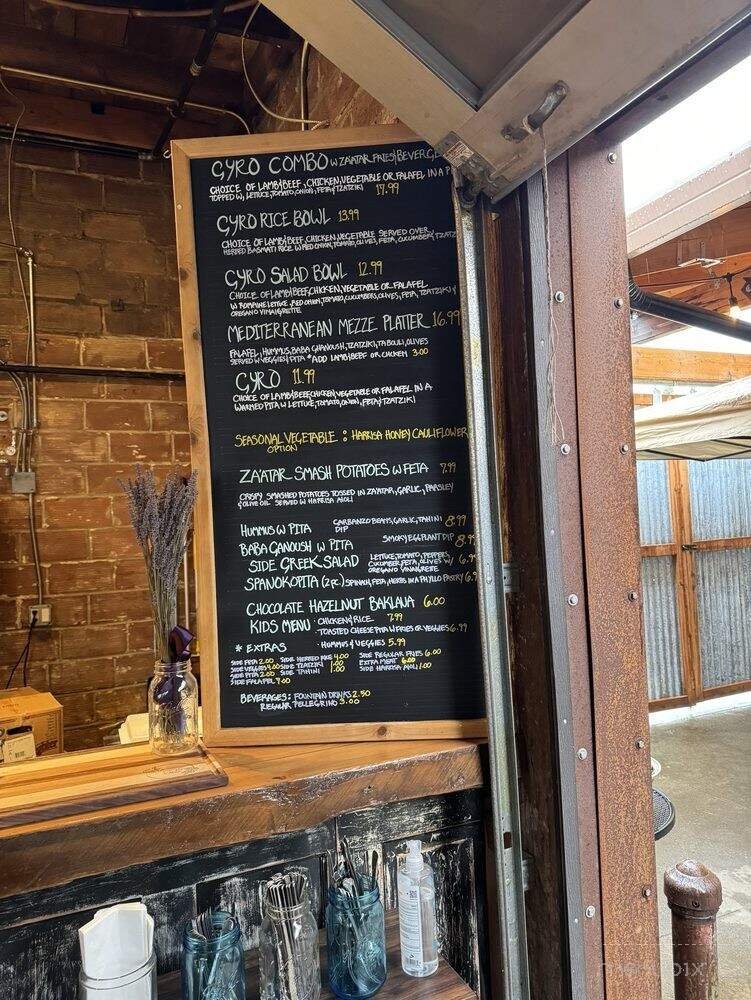 GYRO COMBO W ZA'ATAR FRIES/BEVERG
CHOICE OF LAMB/BEEF, CHICKEN, VEGETABLE OR FALAFEL IN A P
TOPPED W, LETTUCE, TOMATO, ONION, FETA & TZATZIKI 17.99
GYRO RICE BOWL 13.99
CHOICE OF LAMB/BEEF, CHICKEN, VEGETABLE SERVED OVER
HERBED BASMATI RICE W RED ONION, TOMATO, OLIVES, FETA, CUCUMBER & TZATZ
GYRO SALAD BOWL 12.99
CHOICE OF LAMB/BEEF, CHICKEN, VEGETABLE OR FALAFEL
W ROMAINE LETTUCE, RED ONION, TOMATO, CUCUMBERS, OLIVES, FETA, TZATZIKI &
OREGANO VINAIGRETTE
MEDITERRANEAN MEZZE PLATTER 16.99
FALAFEL, HUMMUS, BABA GHANOUSH, TZATZIKI, TABOULI, OLIVES
SERVED W VEGGIES/PITA * ADD LAMB/BEEF OR CHICKEN 3.00
GYRO 11.99
CHOICE OF LAMB/BEEF, CHICKEN, VEGETABLE OR FALAFEL IN A
WARMED PITA W LETTUCE, TOMATO, ONION, FETA & TZATZIKI
SEASONAL VEGETABLE : HARRISA HONEY CAULIFLOWER
OPTION
ZA'ATAR SMASH POTATOES W FETA 7.99
CRISPY SMASHED POTATOES TOSSED IN ZA'ATAR, GARLIC, PARSLEY
& OLIVE OIL SERVED W HARRISA AIOLI
HUMMUS W PITA GARBANZO BEANS, GARLIC, TAHINI DIP 8.99
BABA GANOUSH W PITA SMOKY EGGPLANT DIP 8.9
SIDE GREEK SALAD LETTUCE, TOMATO, PEPPERS, CUCUMBER, FETA, OLIVES W/ OREGANO VINAIGRETTE 6.9
SPANOKOPITA (2 PC.) SPINACH, FETA, HERBS IN A PHYLLO PASTRY 6.9
CHOCOLATE HAZELNUT BAKLAVA 6.00
KIDS MENU · CHICKEN/RICE 7.99
· TOASTED CHEESE PITA W FRIES OR VEGGIES 6.99
· HUMMUS & VEGGIES 5.99
* EXTRAS
SIDE FETA 2.00 SIDE HERBED RICE 4.00 SIDE REGULAR FRIES 6.00
SIDE VEGGIES 4.00 SIDE TZATZIKI 1.00 EXTRA MEAT 6.00
SIDE PITA 2.00 SIDE TAHINI 1.00 SIDE HARRISA AIOLI 1.00
SIDE FALAFEL 7.00
BEVERAGES: FOUNTAIN DRINKS 2.50
REGULAR PELLEGRINO 3.00